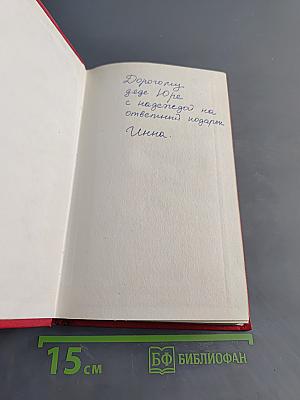 Дорогому
деде Юре
с надеждой на
ответный подарок
Инна.
15 см
БФ БИБЛИОФАН